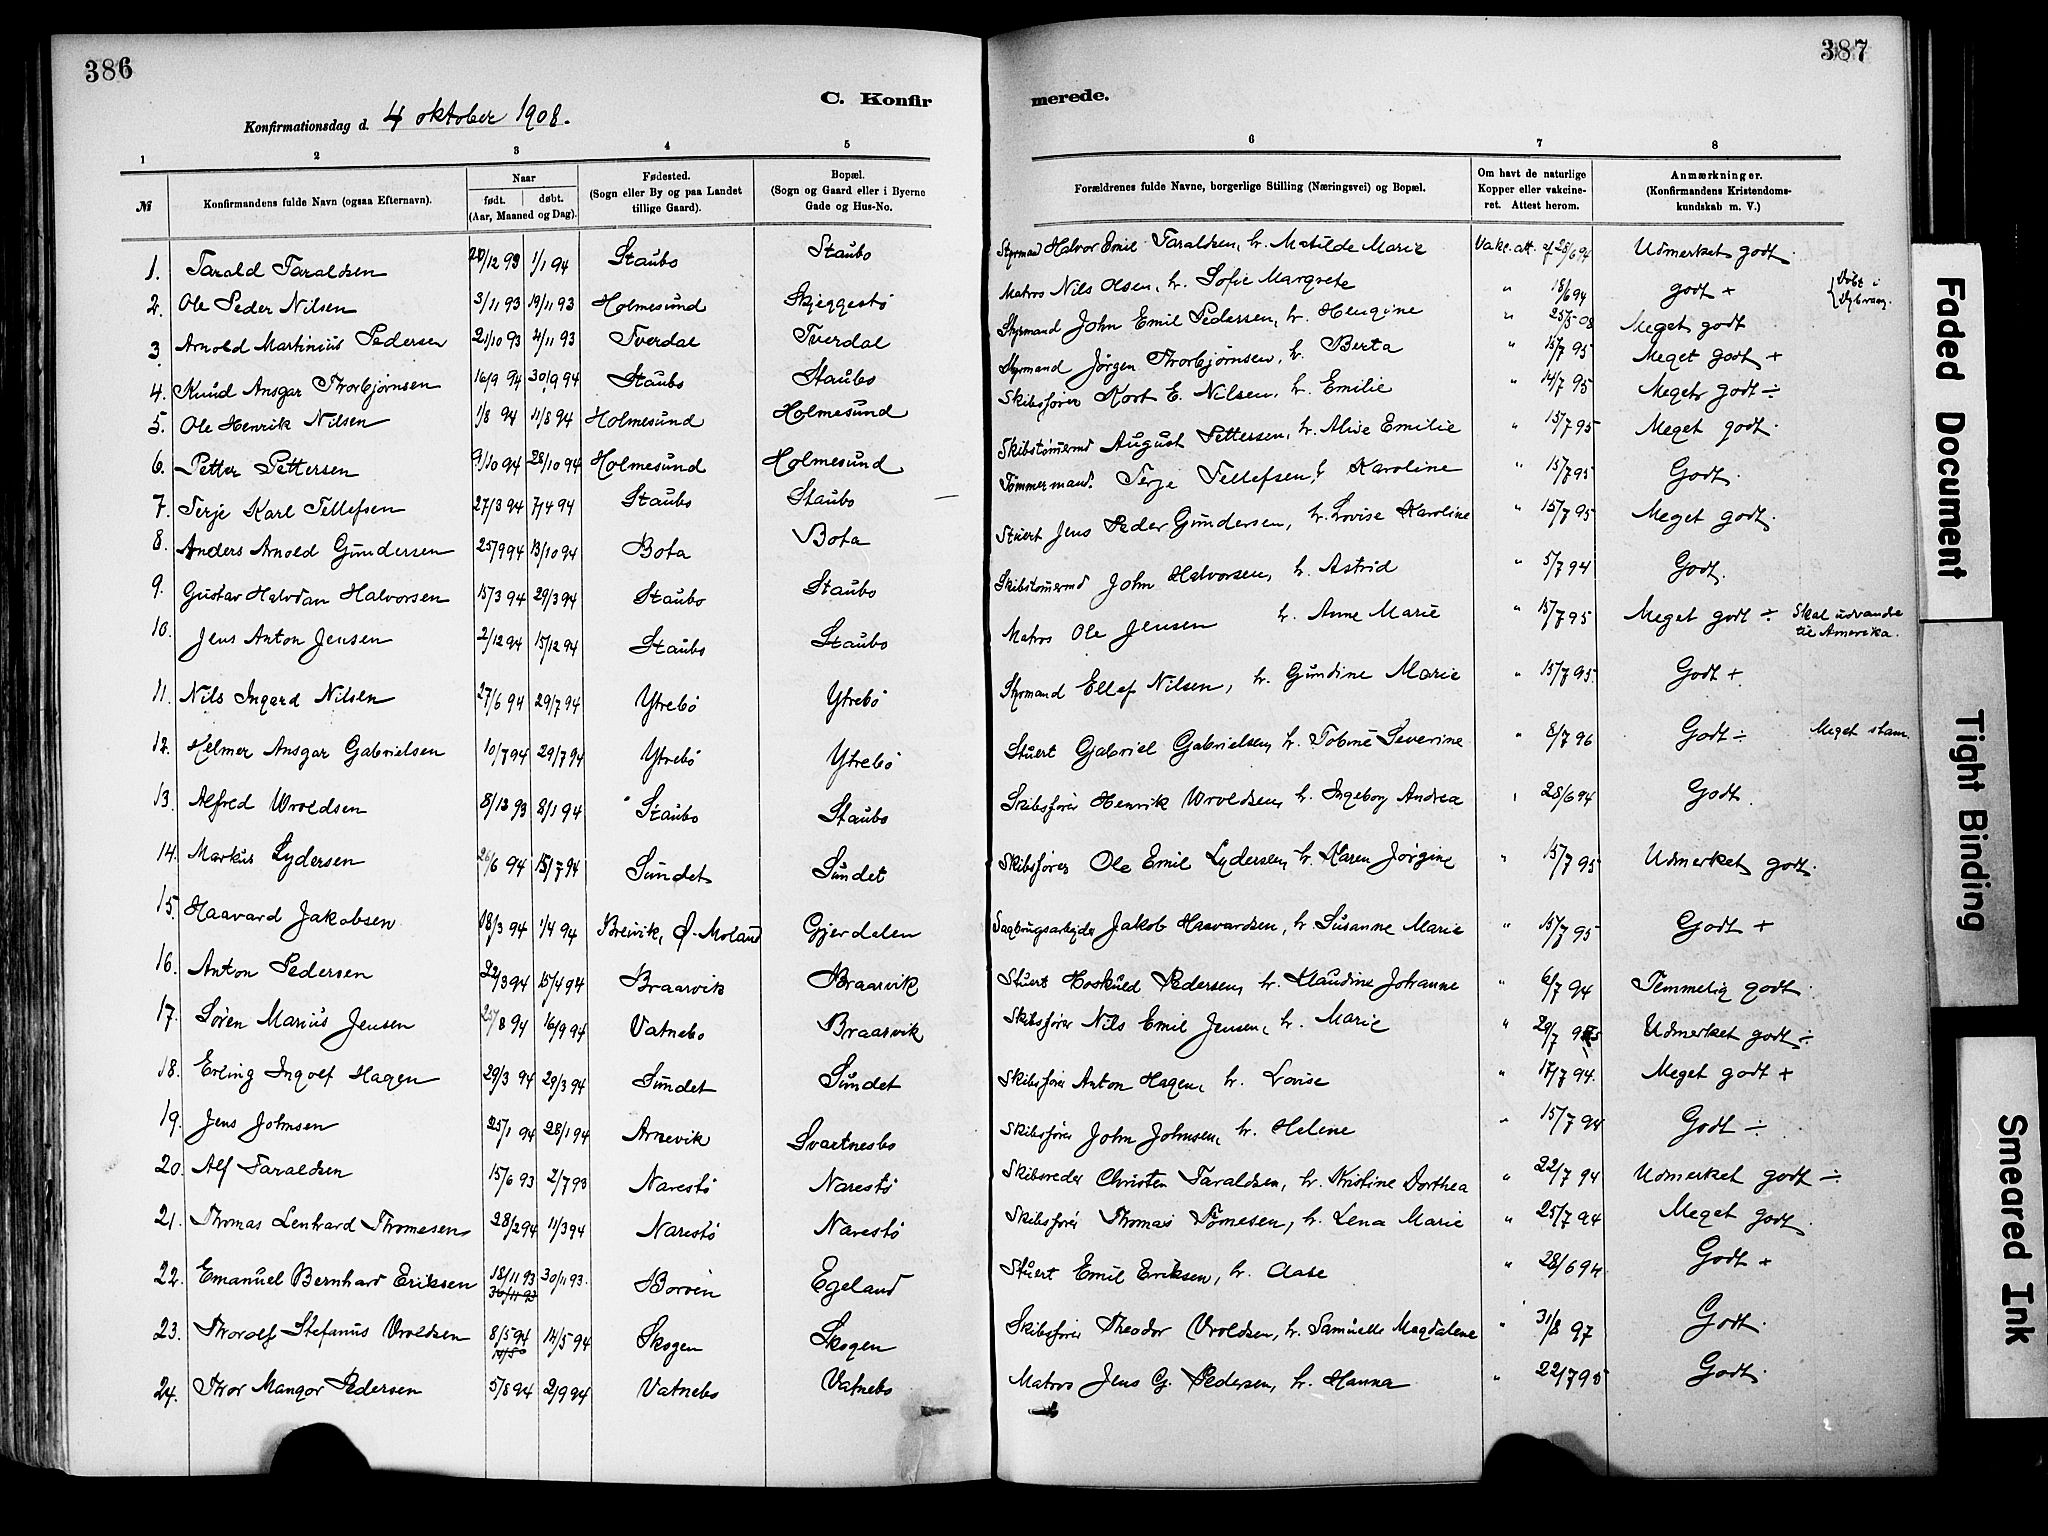 386
387
C. Konfir
merede.
Konfirmationsdag d. 4 oktober 1908.
1 2 3 4 5 6 7 8
№
Konfirmandens fulde Navn (ogsaa Efternavn).
Naar
født. døbt.
(Aar, Maaned og Dag).
Fødested.
(Sogn eller By og paa Landet
tillige Gaard).
Bopæl.
(Sogn og Gaard eller i Byerne
Gade og Hus-No.
Forældrenes fulde Navne, borgerlige Stilling (Næringsvei) og Bopæl.
Om havt de naturlige
Kopper eller vakcine-
ret. Attest herom.
Anmærkninger.
(Konfirmandens Kristendoms-
kundskab m. V.)
1. Tarald Taraldsen 20/12 93 1/1 94 Staubø Staubø Styrmand Halvor Emil Taraldsen, h. Matilde Marie Vakc. att. af 28/6 94 Udmerket godt.
2. Ole Peder Nilsen 3/11 93 19/11 93 Holmesund Skjeggestö Matros Nils Olsen, h. Sofie Margrete " 18/6 94 godt + Døbt i Dybvaag.
3 Arnold Martinius Pedersen 21/10 93 4/11 93 Tverdal Tverdal Styrmand John Emil Pedersen, h. Hengine " 25/5 08 Meget godt
4. Knud Ansgar Thorbjørnsen 16/9 94 30/9 94 Staubø Staubø Styrmand Jørgen Thorbjørnsen, h. Berta " 15/7 95 Meget godt +
5. Ole Henrik Nilsen 1/8 94 11/8 94 Holmesund Holmesund Skibsfører Kort E. Nilsen, h. Emilie " 14/7 95 Meget godt ÷
6. Petter Pettersen 9/10 94 28/10 94 Holmesund Holmesund Skibstømrmd August Pettersen, h. Alise Emilie " 15/7 95 Meget godt.
7. Terje Karl Tellefsen 27/3 94 7/4 94 Staubø Staubø Tømmermand. Terje Tellefsen, h. Karoline " 15/7 95 Godt.
8. Anders Arnold Gundersen 25/9 94 13/10 94 Bota Bota Stuert Jens Peder Gundersen, h. Lovise Karoline " 15/7 95 Meget godt.
9. Gustav Halvdan Halvorsen 15/3 94 29/3 94 Staubø Staubø Skibstømrmd John Halvorsen, h. Astrid " 5/7 94 Godt.
10. Jens Anton Jensen 2/12 94 15/12 94 Staubø Staubø Matros Ole Jensen h. Anne Marie " 15/7 95 Meget godt ÷ Skal udvandre til Amerika.
11. Nils Ingard Nilsen 27/6 94 29/7 94 Ytrebö Ytrebö Styrmand Ellef Nilsen, h. Gundine Marie " 15/7 95. Godt +
12. Helmer Ansgar Gabrielsen 10/7 94 29/7 94 Ytrebö Ytrebö Stuert Gabriel Gabrielsen, h. Tobine Severine " 8/7 96 Godt ÷ Meget stam.
13. Alfred Wroldsen 8/12 93 8/1 94 Staubø Staubø Skibsfører Henrik Wroldsen, h. Ingeborg Andrea " 28/6 94 Godt.
14. Markus Lydersen 26/6 94 15/7 94 Sundet Sundet Skibsfører Ole Emil Lydersen, h. Karen Jørgine " 15/7 95 Udmerket godt.
15. Haavard Jakobsen 18/3 94 1/4 94 Breivik, Ø. Moland Gjerdalen Sagbrugsarbejder Jakob Haavardsen, h. Susanne Marie " 15/7 95 Godt +
16. Anton Pedersen 22/3 94 15/4 94 Braarvik Braarvik Stuert Hoskuld Pedersen, h. Klaudine Johanne " 6/7 94 Temmelig godt.
17. Søren Marius Jensen 25/8 94 16/9 94 Vatnebø Braarvik Skibsfører Nils Emil Jensen, h. Marie " 29/7 95 Udmerket godt ÷
18. Erling Ingolf Hagen 29/3 94 29/3 94 Sundet Sundet Skibsfører Anton Hagen, h. Lovise " 17/7 94. Meget godt +
19. Jens Johnsen 25/1 94 28/1 94 Arnevik Svartnesbø Skibsfører John Johnsen, h. Helene " 15/7 94 Godt ÷
20. Alf Taraldsen 15/6 93 2/7 93 Narestö Narestö Skibsreder Christen Taraldsen, h. Kristine Dorthea " 22/7 94 Udmerket godt ÷
21. Thomas Lenhard Thomesen 28/2 94 11/3 94 Narestö Narestö Skibsfører Thomas Tomesen, h. Lena Marie " 25/7 94 Meget godt.
22. Emanuel Bernhard Eriksen 18/11 93 30/11 93. Borøen Egeland Stuert Emil Eriksen, h. Aase " 28/6 94 Godt +
30/11 93
23. Thorolf Stefanus Vroldsen 8/5 94 14/5 94 Skogen Skogen Skibsfører Theodor Vroldsen, h. Samuelle Magdalene " 31/8 97 Godt.
24. Thor Mangor Pedersen 5/8 94 2/9 94 Vatnebø Vatnebø Matros Jens G. Pedersen, h. Hanna " 22/7 95 Godt.
Faded Document
Tight Binding
Smeared Ink